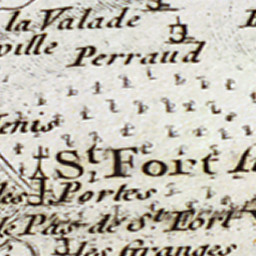 la Valade
ville
Perraud
enis
St Fort
les Portes
le Pas de St Fort
les Granges